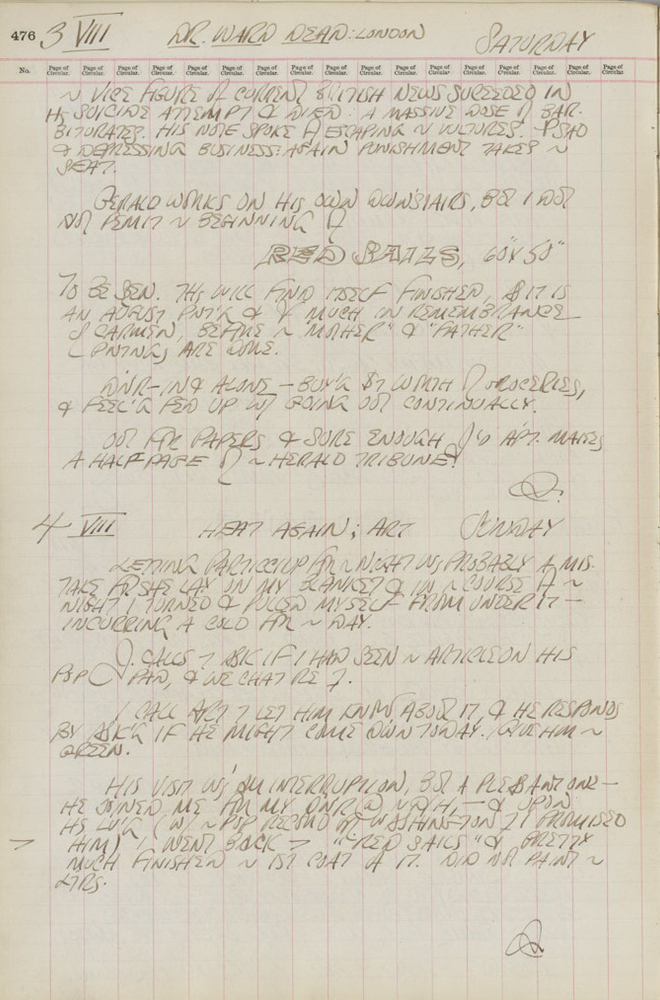 476 3 VIII DR. WARD DEAD: LONDON SATURDAY
No. Page of Circular. Page of Circular. Page of Circular. Page of Circular. Page of Circular. Page of Circular. Page of Circular. Page of Circular. Page of Circular. Page of Circular. Page of Circular. Page of Circular. Page of Circular. Page of Circular. Page of Circular. Page of Circular. Page of Circular.
~ VICE FIGURE OF CURRENT BRITISH NEWS SUCEEDED IN
HS SUICIDE ATTEMPT & DIED: A MASSIVE DOSE OF BAR-
BITURATES. HIS NOTE SPOKE OF ESCAPING ~ VULTURES. SAD
& DEPRESSING BUSINESS: AGAIN PUNISHMENT TAKES ~
SEAT.
GERALD WORKS ON HIS OWN DOWNSTAIRS, BUT I DO
NOT PERMIT ~ BEGINNING OF
RED SAILS, 60" X 50"
TO BE SEN. THS WILL FIND ITSELF FINISHED, & IT IS
AN AUGUST PNT'G & MUCH IN REMEMBRANCE
OF CARMEN, BEFORE ~ "MOTHER" & "FATHER"
PNTNGS ARE DONE.
DINR-ING ALONE — BUY'G $7 WORTH OF GROCERIES,
& FEEL'G FED UP W/ GOING OUT CONTINUALLY.
OUT FOR PAPERS & SURE ENOUGH J'S APT. MAKES
A HALF PAGE OF ~ HERALD TRIBUNE!
4 VIII HEAT AGAIN; ART SUNDAY
LETTING PARTICCI UP FOR ~ NIGHT WS PROBABLY A MIS-
TAKE FOR SHE LAY ON MY BLANKET & IN ~ COURSE OF ~
NIGHT I TURNED & PULLED MYSELF FROM UNDER IT —
INCURRING A COLD FOR ~ DAY.
J. CALLS TO ASK IF I HAD SEEN ~ ARTICLE ON HIS
POP PAD, & WE CHAT RE IT.
I CALL ART TO LET HIM KNOW ABOUT IT, & HE RESPONDS
BY ASK'G IF HE MIGHT COME DOWN TODAY. I GIVE HIM ~
GREEN.
HIS VISIT WS AN INTERRUPTION, BUT A PLEASANT ONE —
HE JOINED ME FOR MY DNR @ ~ — & UPON
HS LV'G (W/ ~ POP RECORD OF WASHINGTON I PROMISED
HIM) I WENT BACK TO "RED SAILS" & PRETTY
MUCH FINISHED ~ 1ST COAT OF IT. DID NOT PAINT ~
LTRS.